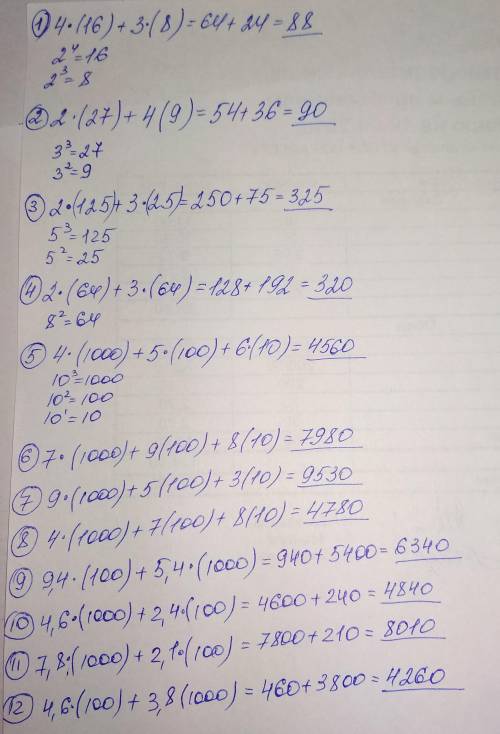 ① 4·(16)+3·(8)=64+24=88
2⁴=16
2³=8
② 2·(27)+4(9)=54+36=90
3³=27
3²=9
③ 2·(125)+3·(25)=250+75=325
5³=125
5²=25
④ 2·(64)+3·(64)=128+192=320
8²=64
⑤ 4·(1000)+5·(100)+6·(10)=4560
10³=1000
10²=100
10¹=10
⑥ 7·(1000)+9(100)+8(10)=7980
⑦ 9·(1000)+5(100)+3(10)=9530
⑧ 4·(1000)+7(100)+8(10)=4780
⑨ 9,4·(100)+5,4·(1000)=940+5400=6340
⑩ 4,6·(1000)+2,4·(100)=4600+240=4840
⑪ 7,8·(1000)+2,1·(100)=7800+210=8010
⑫ 4,6·(100)+3,8(1000)=460+3800=4260